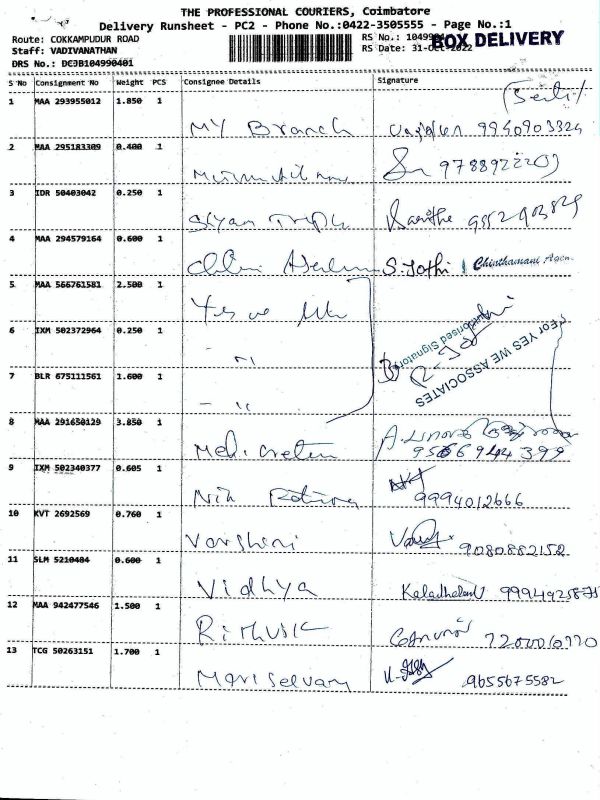 THE PROFESSIONAL COURIERS, Coimbatore
Delivery Runsheet - PC2 - Phone No.:0422-3505555 - Page No.:1
Route: COKKAMPUDUR ROAD
RS No.: 1049904
BOX DELIVERY
Staff: VADIVANATHAN
RS Date: 31-Oct-2022
DRS No.: DC3B104990401
S No Consignment No Weight PCS Consignee Details Signature
1 MAA 293955012 1.850 1
My Branch 9940903324
2 MAA 295183309 0.400 1
3 IDR 50403042 0.250 1
4 MAA 294579164 0.600 1
S. Jothi Chinthamani Agen
5 MAA 566761581 2.500 1
Yes we
6 IXM 502372964 0.250 1
Authorised Signatory
For YES WE ASSOCIATES
7 BLR 675111561 1.600 1
8 MAA 291650129 3.850 1
9566944399
9 IXM 502340377 0.605 1
9994012666
10 KVT 2692569 0.760 1
Varshini 9080882152
11 SLM 5210484 0.600 1
Vidhya 9994925875
12 MAA 942477546 1.500 1
Rithvik 7200010770
13 TCG 50263151 1.700 1
Mariselvam 9655675582